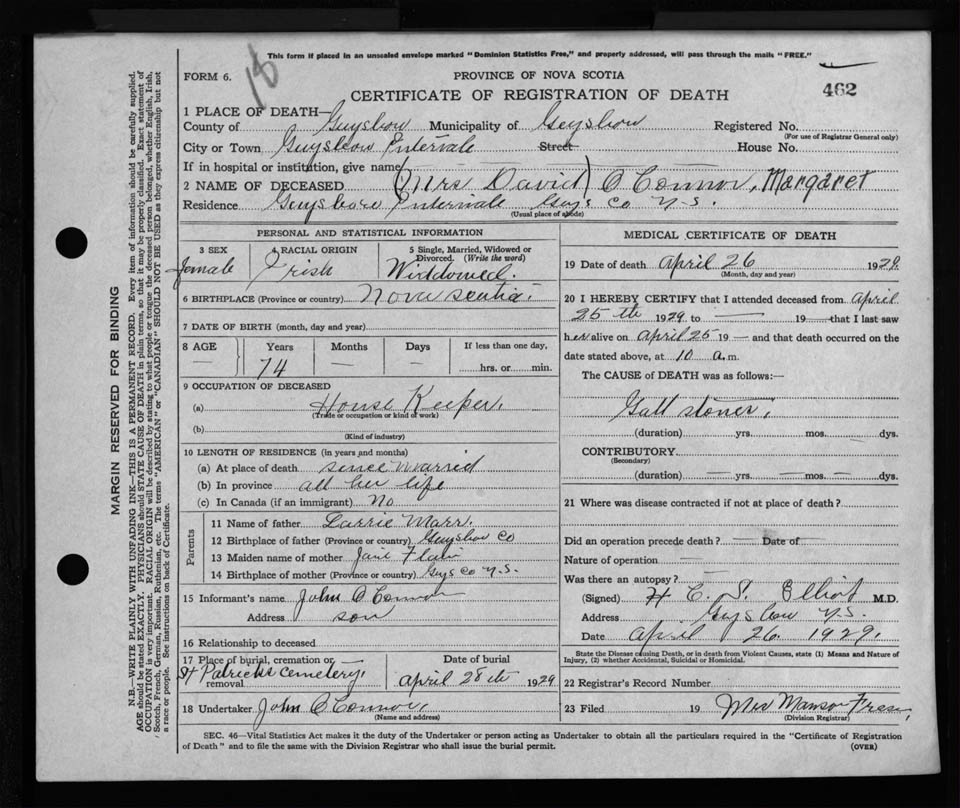 This form if placed in an unsealed envelope marked "Dominion Statistics Free," and properly addressed, will pass through the mails "FREE."
18
FORM 6.
PROVINCE OF NOVA SCOTIA
462
CERTIFICATE OF REGISTRATION OF DEATH
1 PLACE OF DEATH—
County of Guysboro Municipality of Guysboro Registered No.
(For use of Registrar General only)
City or Town Guysboro Intervale Street House No.
If in hospital or institution, give name
2 NAME OF DECEASED (Mrs David) O Connor, Margaret
Residence Guysboro Intervale Guys Co N.S.
(Usual place of abode)
PERSONAL AND STATISTICAL INFORMATION
3 SEX 4 RACIAL ORIGIN 5 Single, Married, Widowed or Divorced. (Write the word)
Female Irish Widdowed.
6 BIRTHPLACE (Province or country) Nova Scotia.
7 DATE OF BIRTH (month, day and year)
8 AGE Years Months Days If less than one day,
— 74 — hrs. or min.
9 OCCUPATION OF DECEASED
(a) House Keeper.
(Trade or occupation or kind of work)
(b)
(Kind of industry)
10 LENGTH OF RESIDENCE (in years and months)
(a) At place of death since married
(b) In province all her life
(c) In Canada (if an immigrant) No
Parents
11 Name of father Larrie Marr.
12 Birthplace of father (Province or country) Guysboro Co
13 Maiden name of mother Jane
14 Birthplace of mother (Province or country) Guys Co N.S.
15 Informant's name John O Connor
Address son
16 Relationship to deceased
17 Place of burial, cremation or removal St Patricks Cemetery. Date of burial April 28th 1929
18 Undertaker John O Connor,
(Name and address)
MEDICAL CERTIFICATE OF DEATH
19 Date of death April 26 1929.
(Month, day and year)
20 I HEREBY CERTIFY that I attended deceased from April
25th 1929 to — 19 — that I last saw
her alive on April 25 19 — and that death occurred on the
date stated above, at 10 a.m.
The CAUSE of DEATH was as follows:—
Gall stones,
(duration) yrs. mos. dys.
CONTRIBUTORY
(Secondary)
(duration) — yrs. — mos. — dys.
21 Where was disease contracted if not at place of death?
Did an operation precede death? — Date of —
Nature of operation
Was there an autopsy? —
(Signed) H C S. Elliot M.D.
Address Guysboro N.S.
Date April 26 1929.
State the Disease causing Death, or in death from Violent Causes, state (1) Means and Nature of
Injury, (2) whether Accidental, Suicidal or Homicidal.
22 Registrar's Record Number
23 Filed 19 Mrs Manson
(Division Registrar)
SEC. 46—Vital Statistics Act makes it the duty of the Undertaker or person acting as Undertaker to obtain all the particulars required in the "Certificate of Registration
of Death" and to file the same with the Division Registrar who shall issue the burial permit.
(OVER)
MARGIN RESERVED FOR BINDING
N.B.—WRITE PLAINLY, WITH UNFADING INK—THIS IS A PERMANENT RECORD. Every item of information should be carefully supplied.
AGE should be stated EXACTLY. PHYSICIANS should STATE CAUSE OF DEATH in plain terms, so that it may be properly classified. Exact statement of
OCCUPATION is very important. RACIAL ORIGIN will be described by stating to what people or tongue the deceased person belonged, whether English, Irish,
Scotch, French, German, Russian, Ruthenian, etc. The terms "AMERICAN" or "CANADIAN" SHOULD NOT BE USED as they express citizenship but not
a race or people. See instructions on back of Certificate.